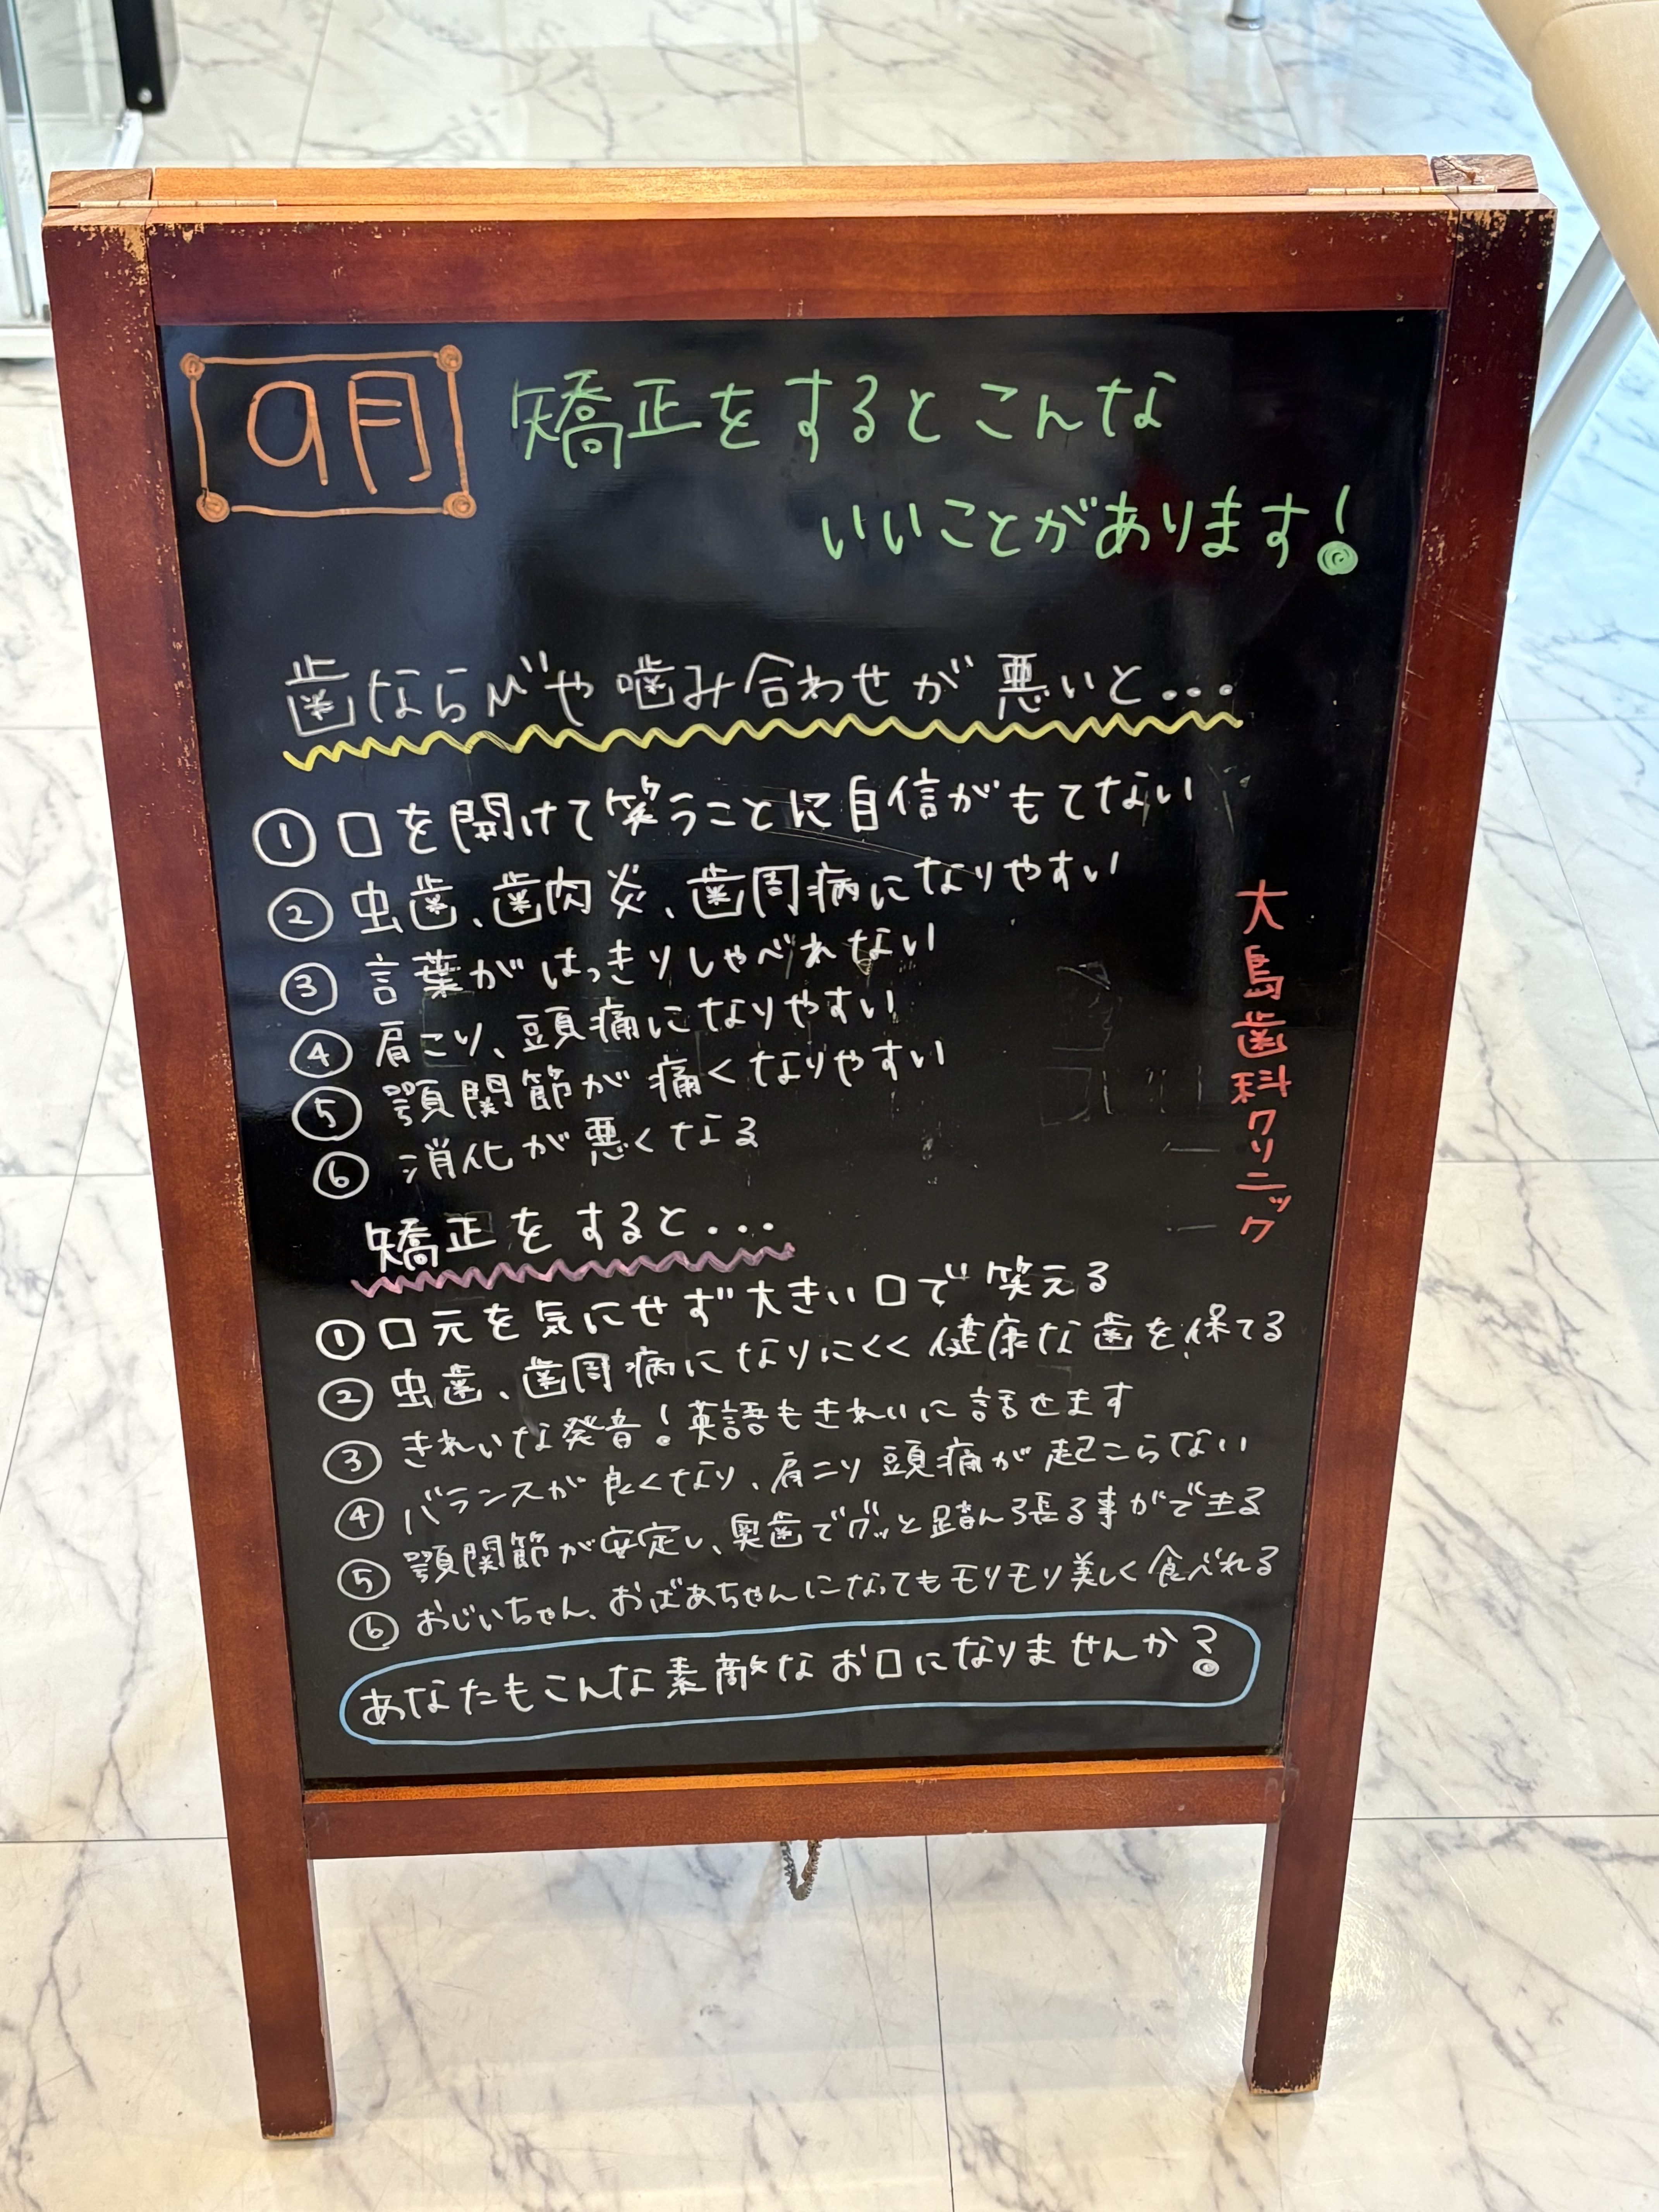 9月
矯正をするとこんな
いいことがあります!
歯ならびや噛み合わせが悪いと...
① 口を開けて笑うことに自信がもてない
② 虫歯、歯肉炎、歯周病になりやすい
③ 言葉がはっきりしゃべれない
④ 肩こり、頭痛になりやすい
⑤ 顎関節が痛くなりやすい
⑥ 消化が悪くなる
矯正をすると...
① 口元を気にせず大きい口で笑える
② 虫歯、歯周病になりにくく健康な歯を保てる
③ きれいな発音!英語もきれいに話せます
④ バランスが良くなり、肩こり頭痛が起こらない
⑤ 顎関節が安定し、奥歯でグッと踏ん張る事ができる
⑥ おじいちゃん、おばあちゃんになってもモリモリ美しく食べれる
あなたもこんな素敵なお口になりませんか?
大島歯科クリニック